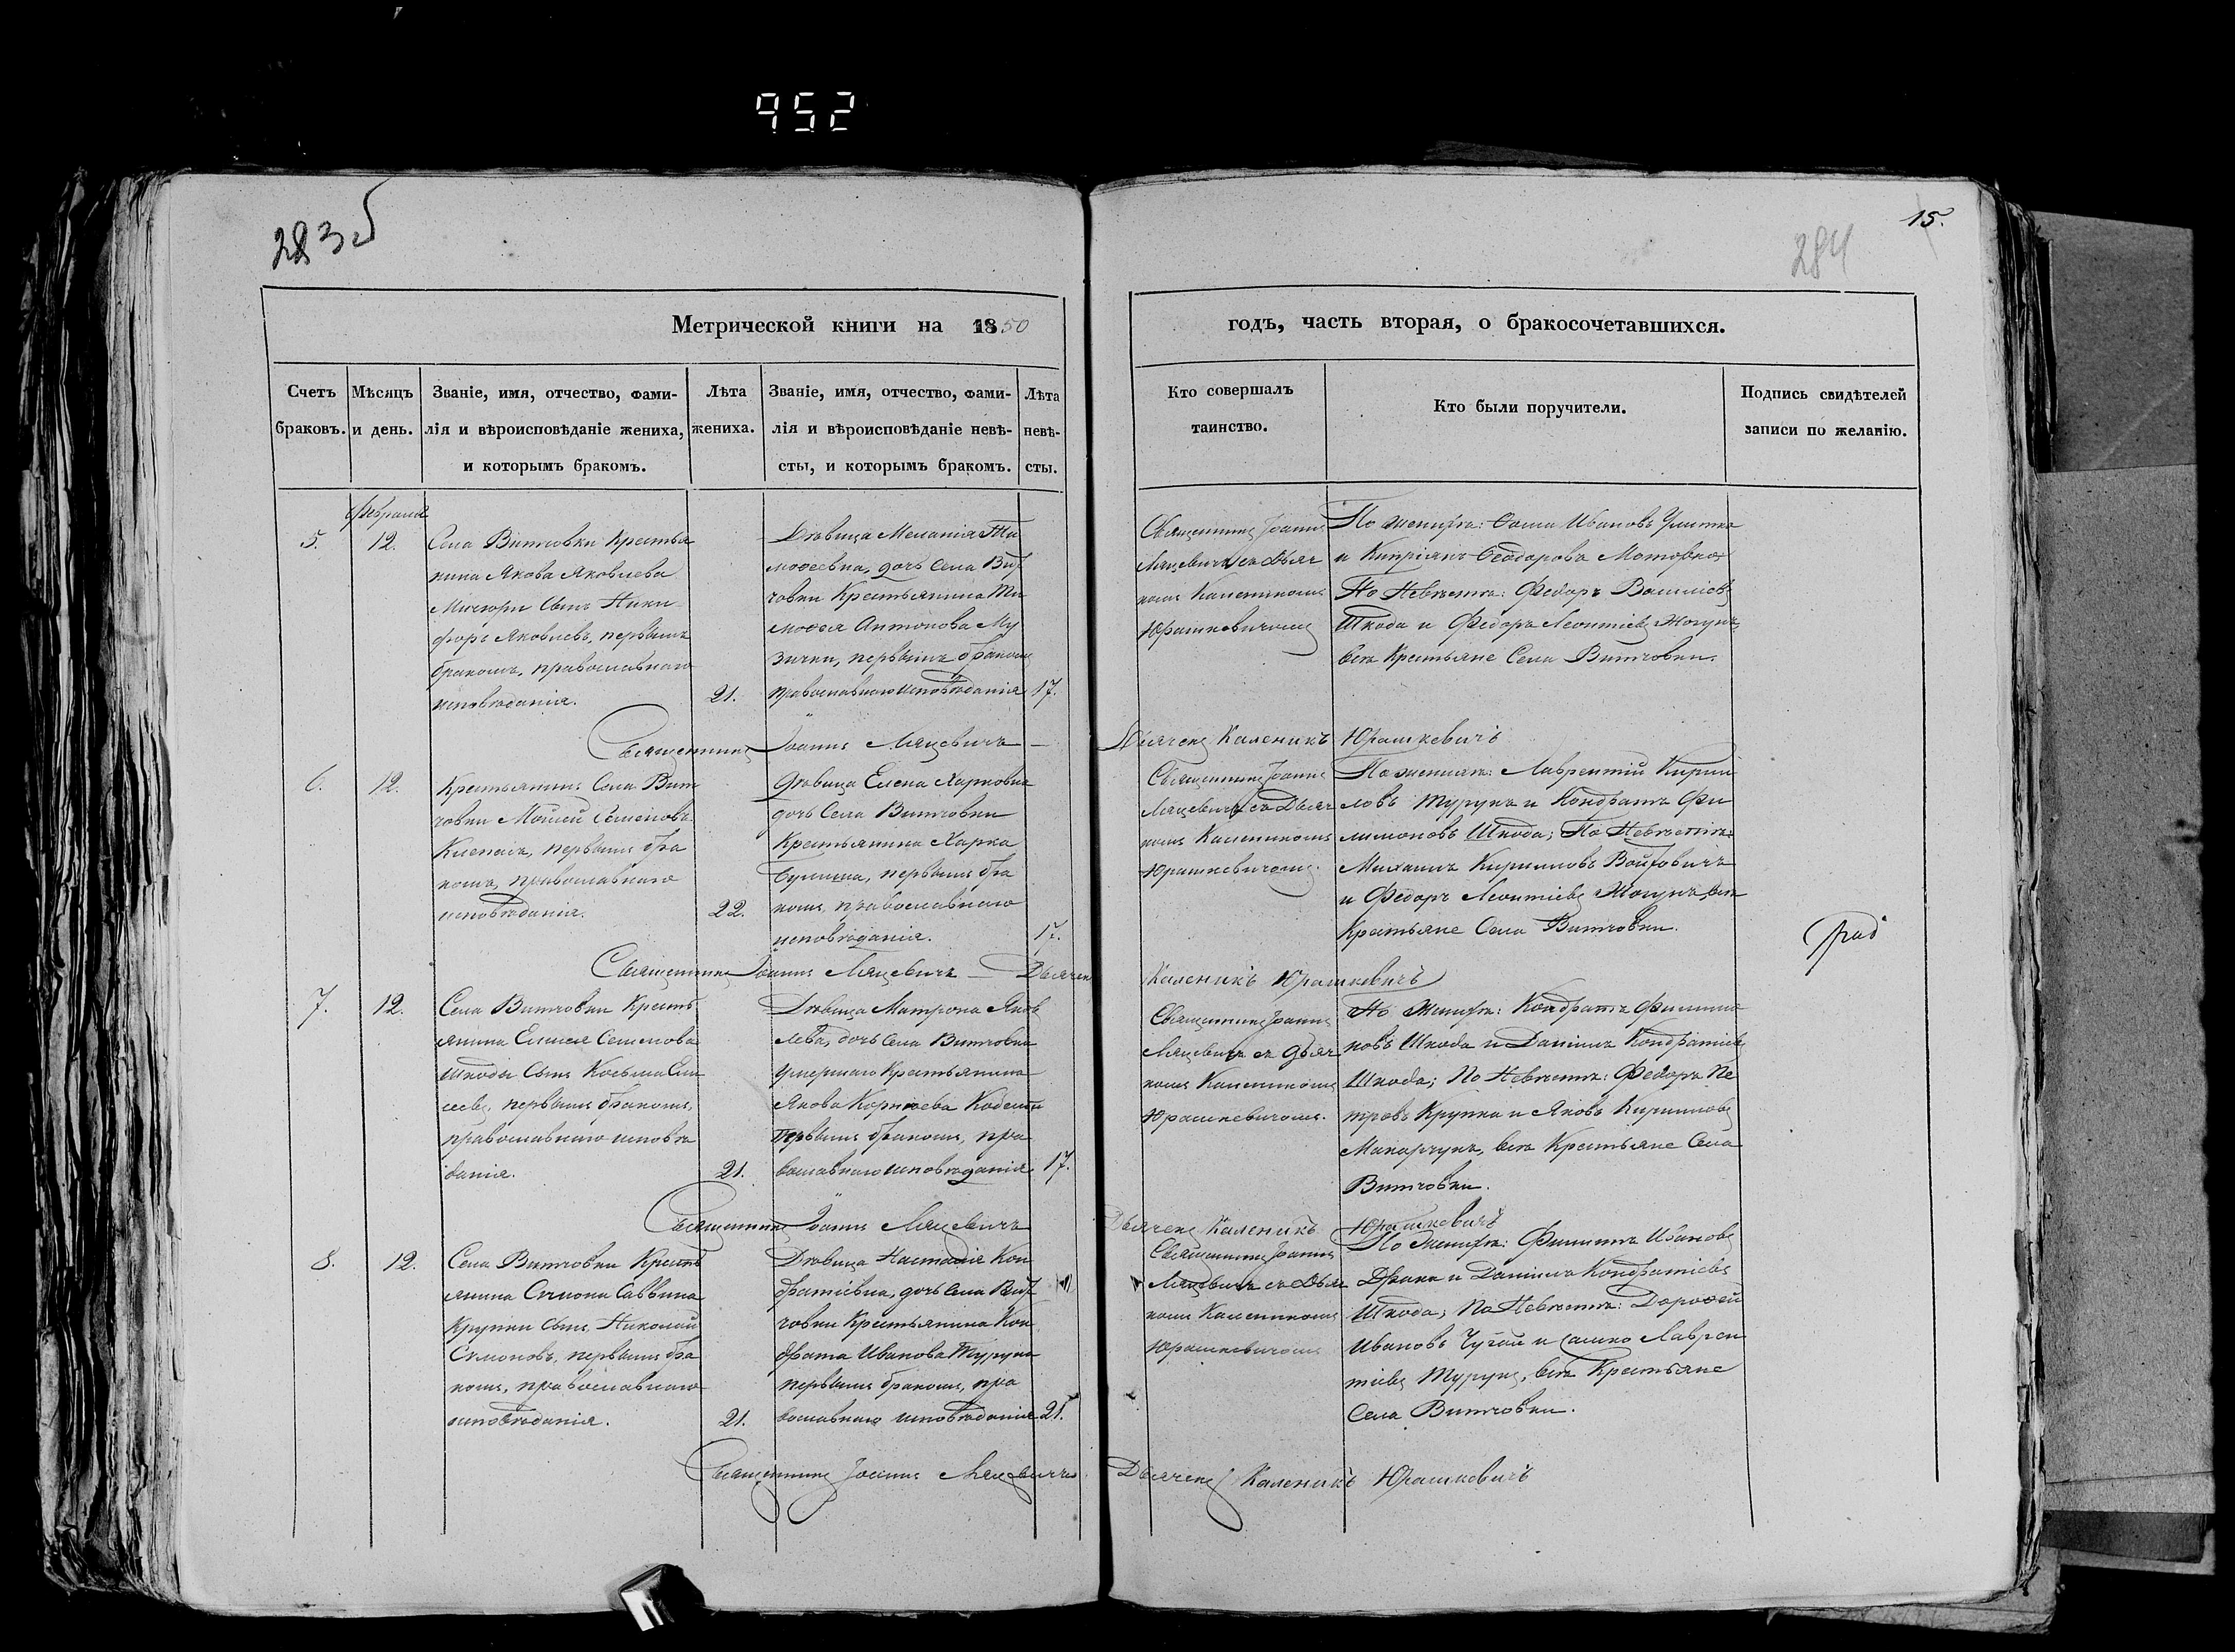 952
283 б
284
15.
Метрической книги на 1850
годъ, часть вторая, о бракосочетавшихся.
Счетъ браковъ.
Мѣсяцъ и день.
Званіе, имя, отчество, фами-
лія и вѣроисповѣданіе жениха,
и которымъ бракомъ.
Лѣта
жениха.
Званіе, имя, отчество, фами-
лія и вѣроисповѣданіе невѣ-
сты, и которымъ бракомъ.
Лѣта
невѣ-
сты.
Кто совершалъ
таинство.
Кто были поручители.
Подпись свидѣтелей
записи по желанію.
Февраля
5.
12.
Села Витговки Крестья
нина Якова Яковлева
Мичюри сынъ Ники
форъ Яковлевъ, первымъ
бракомъ, православнаго
исповѣданія.
21.
Дѣвица Меланія Ти
мофеевна, дочь Села Вит
говки Крестьянина Ти
мофея Антонова Му
зички, первымъ бракомъ
православнаго исповѣданія
17.
Священникъ Іоаннъ
Ляцевичъ съ Дьяч
комъ Каленикомъ
Юрашкевичомъ
По женихѣ: Фома Ивановъ Улитка
и Кипріянъ Феодоровъ Мотовко
По Невѣстѣ: Федоръ Василіевъ
Шкода и Федоръ Леонтіевъ Жогунъ,
всѣ Крестьяне Села Витговки.
Священникъ Іоаннъ Ляцевичъ — Дьячекъ Каленикъ Юрашкевичъ
6.
12.
Крестьянинъ Села Вит
говки Моисей Семеновъ
Клепачъ, первымъ бра
комъ, православнаго
исповѣданія.
22.
Дѣвица Елена Харковна
дочь Села Витговки
Крестьянина Харка
первымъ бра
комъ, православнаго
исповѣданія.
17.
Священникъ Іоаннъ
Ляцевичъ съ Дьяч
комъ Каленикомъ
Юрашкевичомъ.
По женихѣ: Лаврентій Кирил
ловъ Турунъ и Кондратъ Фи
лимоновъ Шкода; По Невѣстѣ:
Михаилъ Кирилловъ Войтовичъ
и Федоръ Леонтіевъ Жогунъ, всѣ
Крестьяне Села Витговки.
Священникъ Іоаннъ Ляцевичъ — Дьячекъ Каленикъ Юрашкевичъ
7.
12.
Села Витговки Кресть
янина Елисея Семенова
Шкоды Сынъ Косьма Ели
сеевъ, первымъ бракомъ,
православнаго исповѣ
данія.
21.
Дѣвица Матрона Яков
лева, дочь Села Витговки
умершаго Крестьянина
Якова Корнѣева
первымъ бракомъ, пра
вославнаго исповѣданія.
17.
Священникъ Іоаннъ
Ляцевичъ съ Дьяч
комъ Каленикомъ
Юрашкевичомъ.
По Женихѣ: Кондратъ Филимо
новъ Шкода и Даніилъ Кондратіевъ
Шкода; По Невѣстѣ: Федоръ Пе
тровъ Крупка и Яковъ Кирилловъ
Макарчукъ, всѣ Крестьяне Села
Витговки.
Священникъ Іоаннъ Ляцевичъ
Дьячекъ Каленикъ Юрашкевичъ
8.
12.
Села Витговки Кресть
янина Симона Саввина
Крупки Сынъ Николай
Симоновъ, первымъ бра
комъ, православнаго
исповѣданія.
21.
Дѣвица Настасія Кон
дратіевна, дочь Села Вит
говки Крестьянина Кон
драта Иванова Туруна
первымъ бракомъ, пра
вославнаго исповѣданія
21.
Священникъ Іоаннъ
Ляцевичъ съ Дьяч
комъ Каленикомъ
Юрашкевичомъ
По Женихѣ: Филиппъ Ивановъ
и Даніилъ Кондратіевъ
Шкода; По Невѣстѣ: Дорофей
Ивановъ Чугай и Сашко Лаврен
тіевъ Турунъ, всѣ Крестьяне
Села Витговки.
Священникъ Іоаннъ Ляцевичъ. Дьячекъ Каленикъ Юрашкевичъ